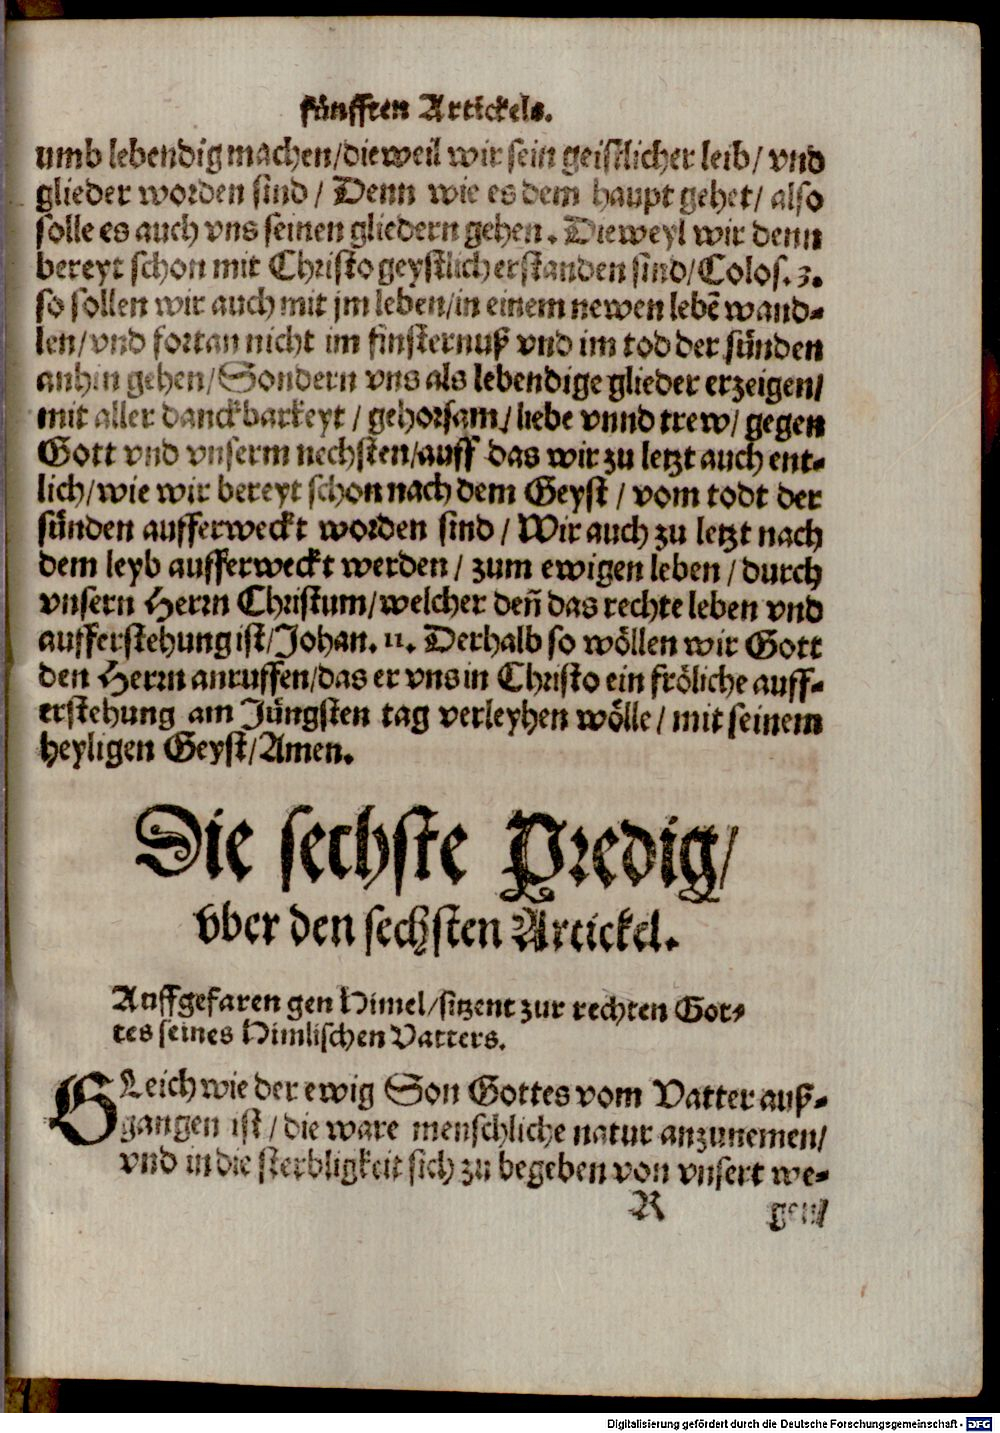 fünfften Artickels.
umb lebendig machen/dieweil wir sein geistlicher leib/ vnd
glieder worden sind / Denn wie es dem haupt gehet/ also
solle es auch vns seinen gliedern gehen. Dieweyl wir denn
bereyt schon mit Christo geystlich erstanden sind/Colos. 3.
so sollen wir auch mit jm leben/in einem newen lebẽ wand-
len/vnd fortan nicht im finsternuß vnd im tod der sünden
anhin gehen/Sondern vns als lebendige glieder erzeigen/
mit aller danckbarkeyt / gehorsam/ liebe vnnd trew/ gegen
Gott vnd vnserm nechsten/auff das wir zu letzt auch ent-
lich/wie wir bereyt schon nach dem Geyst / vom todt der
sünden aufferweckt worden sind / Wir auch zu letzt nach
dem leyb aufferweckt werden / zum ewigen leben / durch
vnsern Herrn Christum/welcher deñ das rechte leben vnd
aufferstehung ist/Johan. 11. Derhalb so wöllen wir Gott
den Herrn anruffen/das er vns in Christo ein fröliche auff-
erstehung am Jüngsten tag verleyhen wölle / mit seinem
heyligen Geyst/Amen.
Die sechste Predig/
vber den sechsten Artickel.
Auffgefaren gen Himel/sitzent zur rechten Got-
tes seines Himlischen Vatters.
GLeich wie der ewig Son Gottes vom Vatter auß-
gangen ist / die ware menschliche natur anzunemen/
vnd in die sterbligkeit sich zu begeben von vnsert we-
R gen/
Digitalisierung gefördert durch die Deutsche Forschungsgemeinschaft - DFG